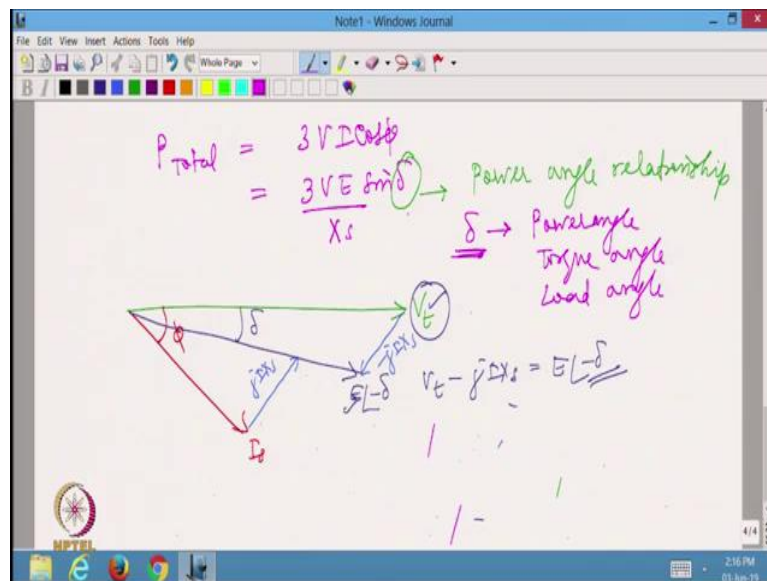 Note1 - Windows Journal
File Edit View Insert Actions Tools Help
Whole Page
B I
P Total = 3 V I Cosϕ
= 3 V E Sin δ / Xs → Power angle relationship
δ → Power angle
Torque angle
Load angle
Vt
ϕ
δ
jIXs
-jIXs
E∠-δ
Vt - jIXs = E∠-δ
NPTEL
4/4
2:16 PM
03-Jun-19